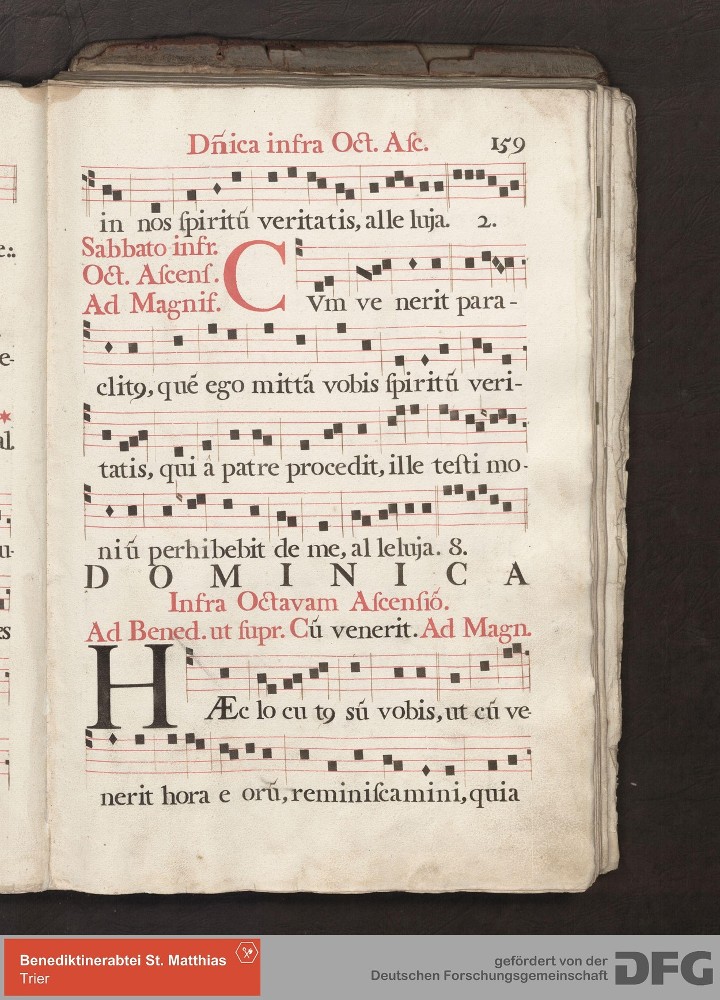 Dñica infra Oct. Asc. 159
in nos ſpiritū veritatis, alle luja. 2.
Sabbato infr.
Oct. Aſcenſ.
Ad Magnif.
CVm ve nerit para-
clitꝯ, qué ego mittā vobis ſpiritū veri-
tatis, qui à patre procedit, ille teſti mo-
niū perhibebit de me, al leluja. 8.
DOMINICA
Infra Octavam Aſcenſiō.
Ad Bened. ut ſupr. Cū venerit. Ad Magn.
HÆc lo cu tꝯ sū vobis, ut cū ve-
nerit hora e orū, reminiſcamini, quia
Benediktinerabtei St. Matthias
Trier
gefördert von der
Deutschen Forschungsgemeinschaft
DFG